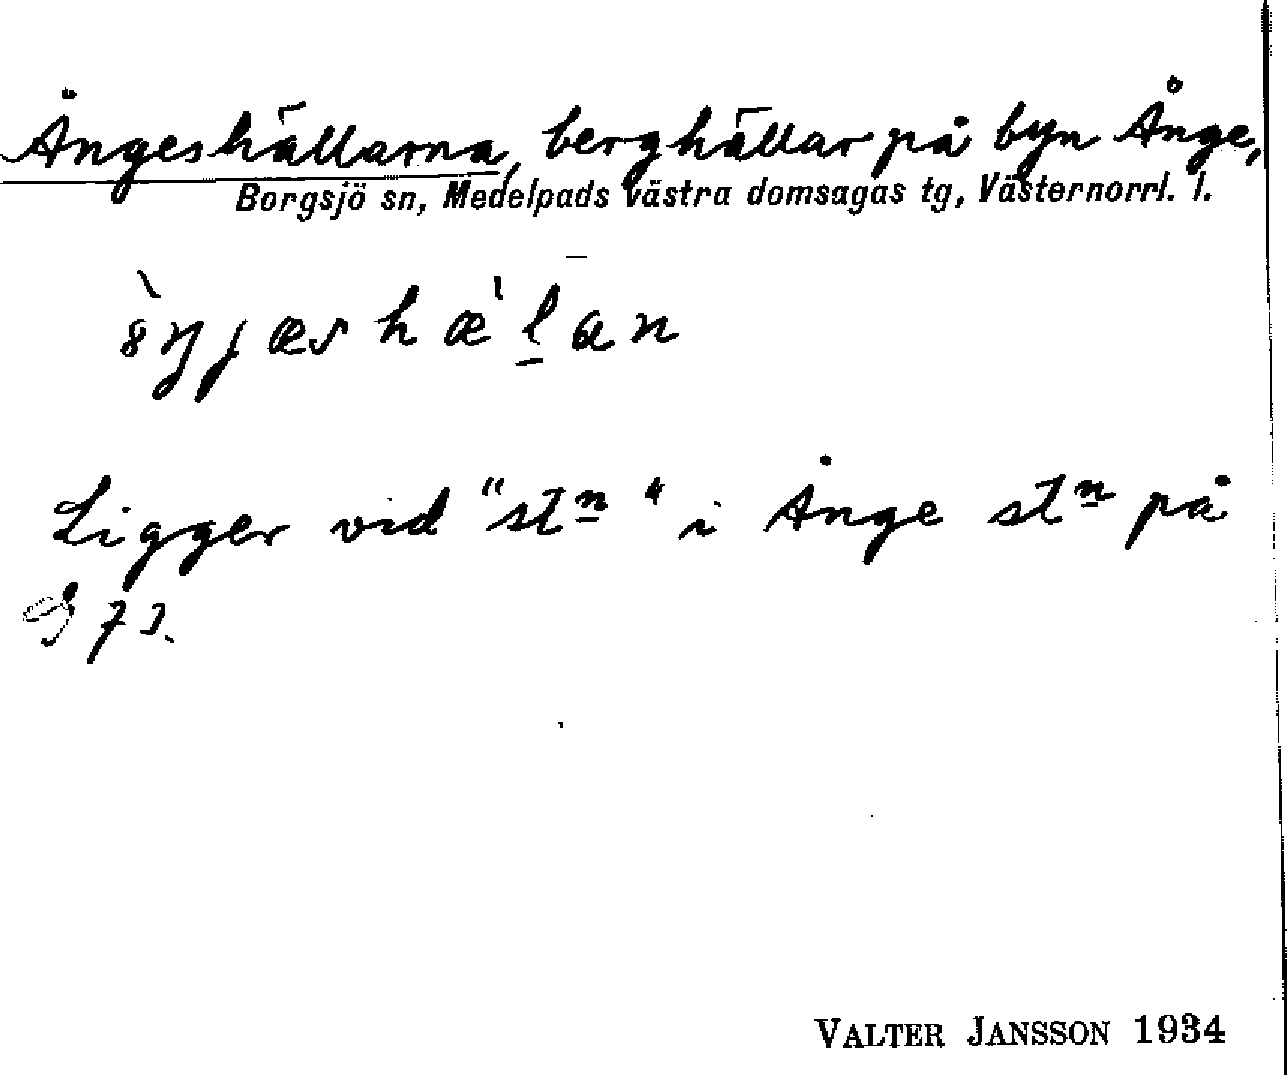 Ångeshällarna, berghällar på byn Ånge,
Borgsjö sn, Medelpads västra domsagas tg, Västernorrl. l.
Ligger vid "stn" i Ånge stn på
G 73.
VALTER JANSSON 1934